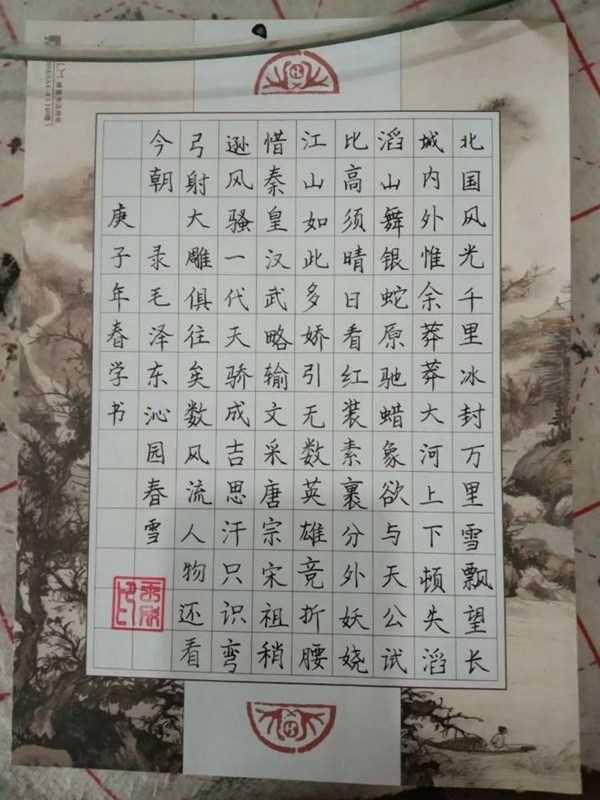 北国风光千里冰封万里雪飘望长
城内外惟余莽莽大河上下顿失滔
滔山舞银蛇原驰蜡象欲与天公试
比高须晴日看红装素裹分外妖娆
江山如此多娇引无数英雄竞折腰
惜秦皇汉武略输文采唐宗宋祖稍
逊风骚一代天骄成吉思汗只识弯
弓射大雕俱往矣数风流人物还看
今朝 录毛泽东沁园春雪
庚子年春学书